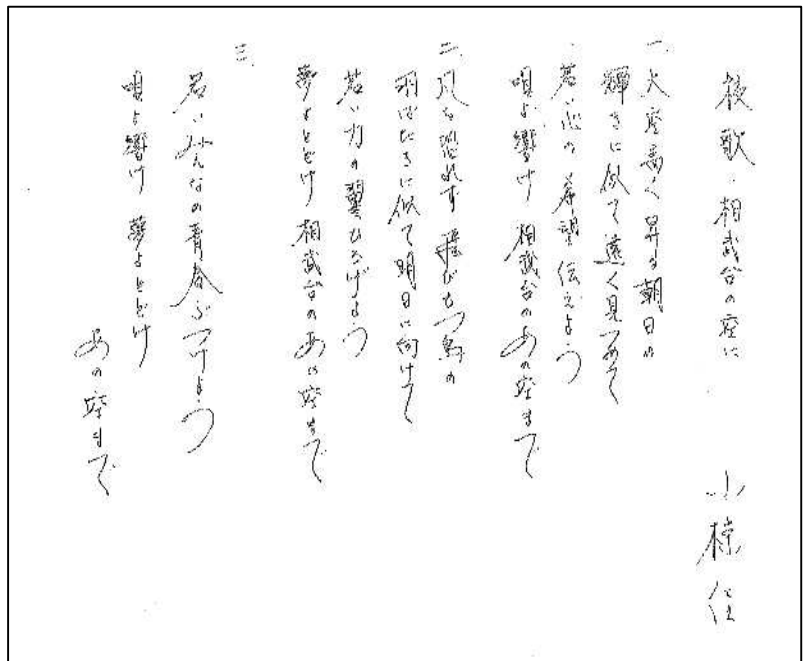 校歌・相武台の空に
小椋佳
一、大空高く昇る朝日の
輝きに似て遠く見つめて
若い心の希望伝えよう
唄よ響け 相武台のあの空まで
二、風も恐れず飛びたつ鳥の
羽ばたきに似て明日に向けて
若い力の翼ひろげよう
夢よとどけ 相武台のあの空まで
三、
若いみんなの青春ぶつけよう
唄よ響け 夢よとどけ
あの空まで